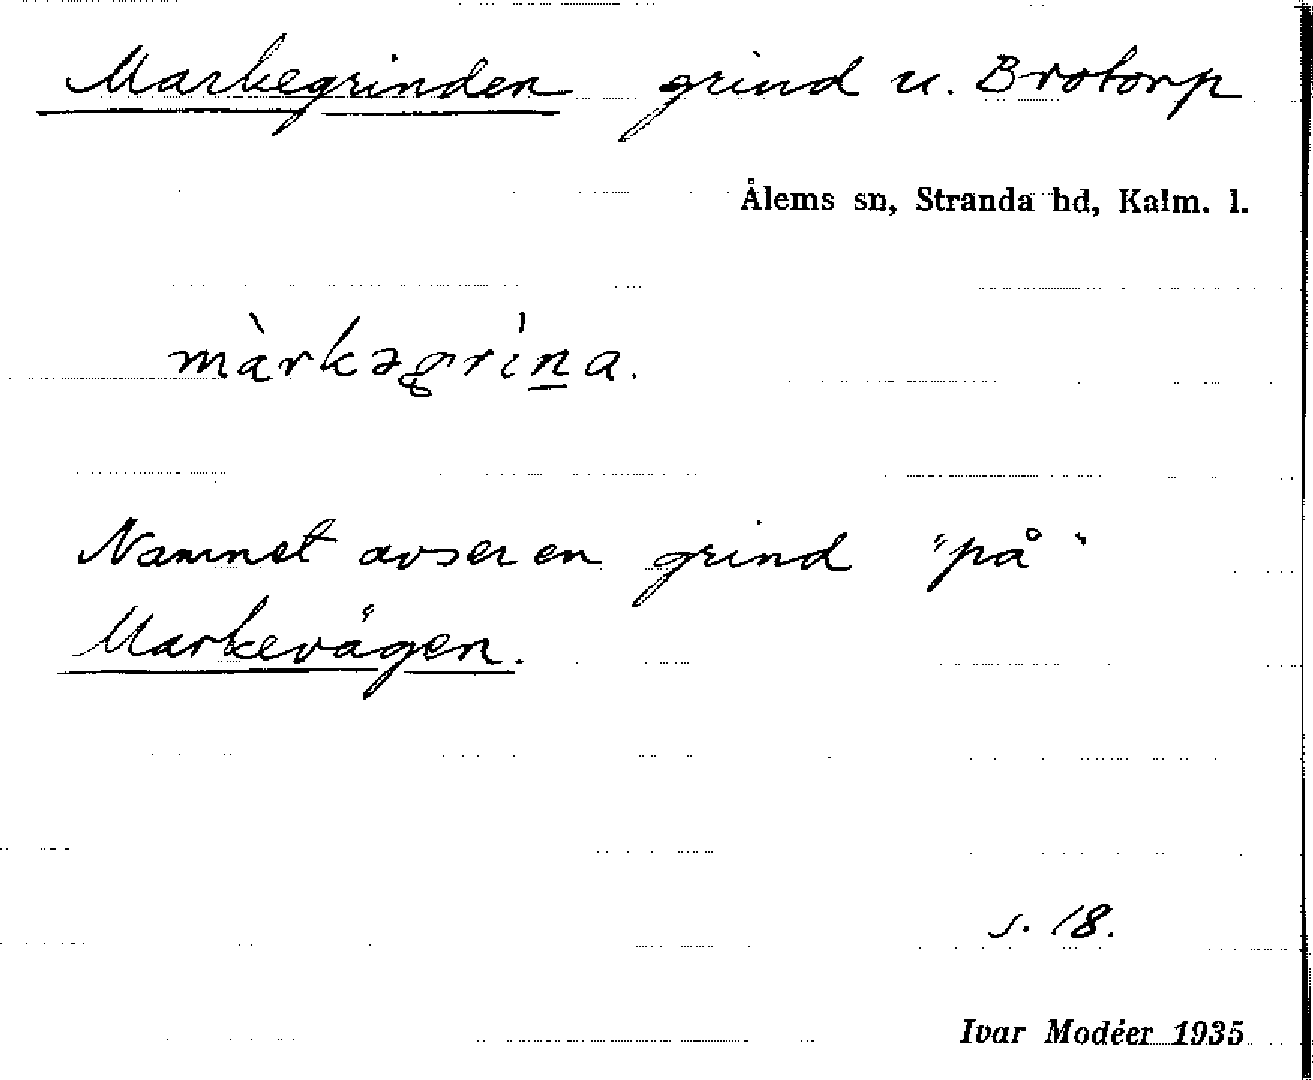 Markegrinden grind u. Brotorp
Ålems sn, Stranda hd, Kalm. l.
màrkəgrìna.
Namnet avser en grind "på"
Markevägen.
s. 18.
Ivar Modéer 1935